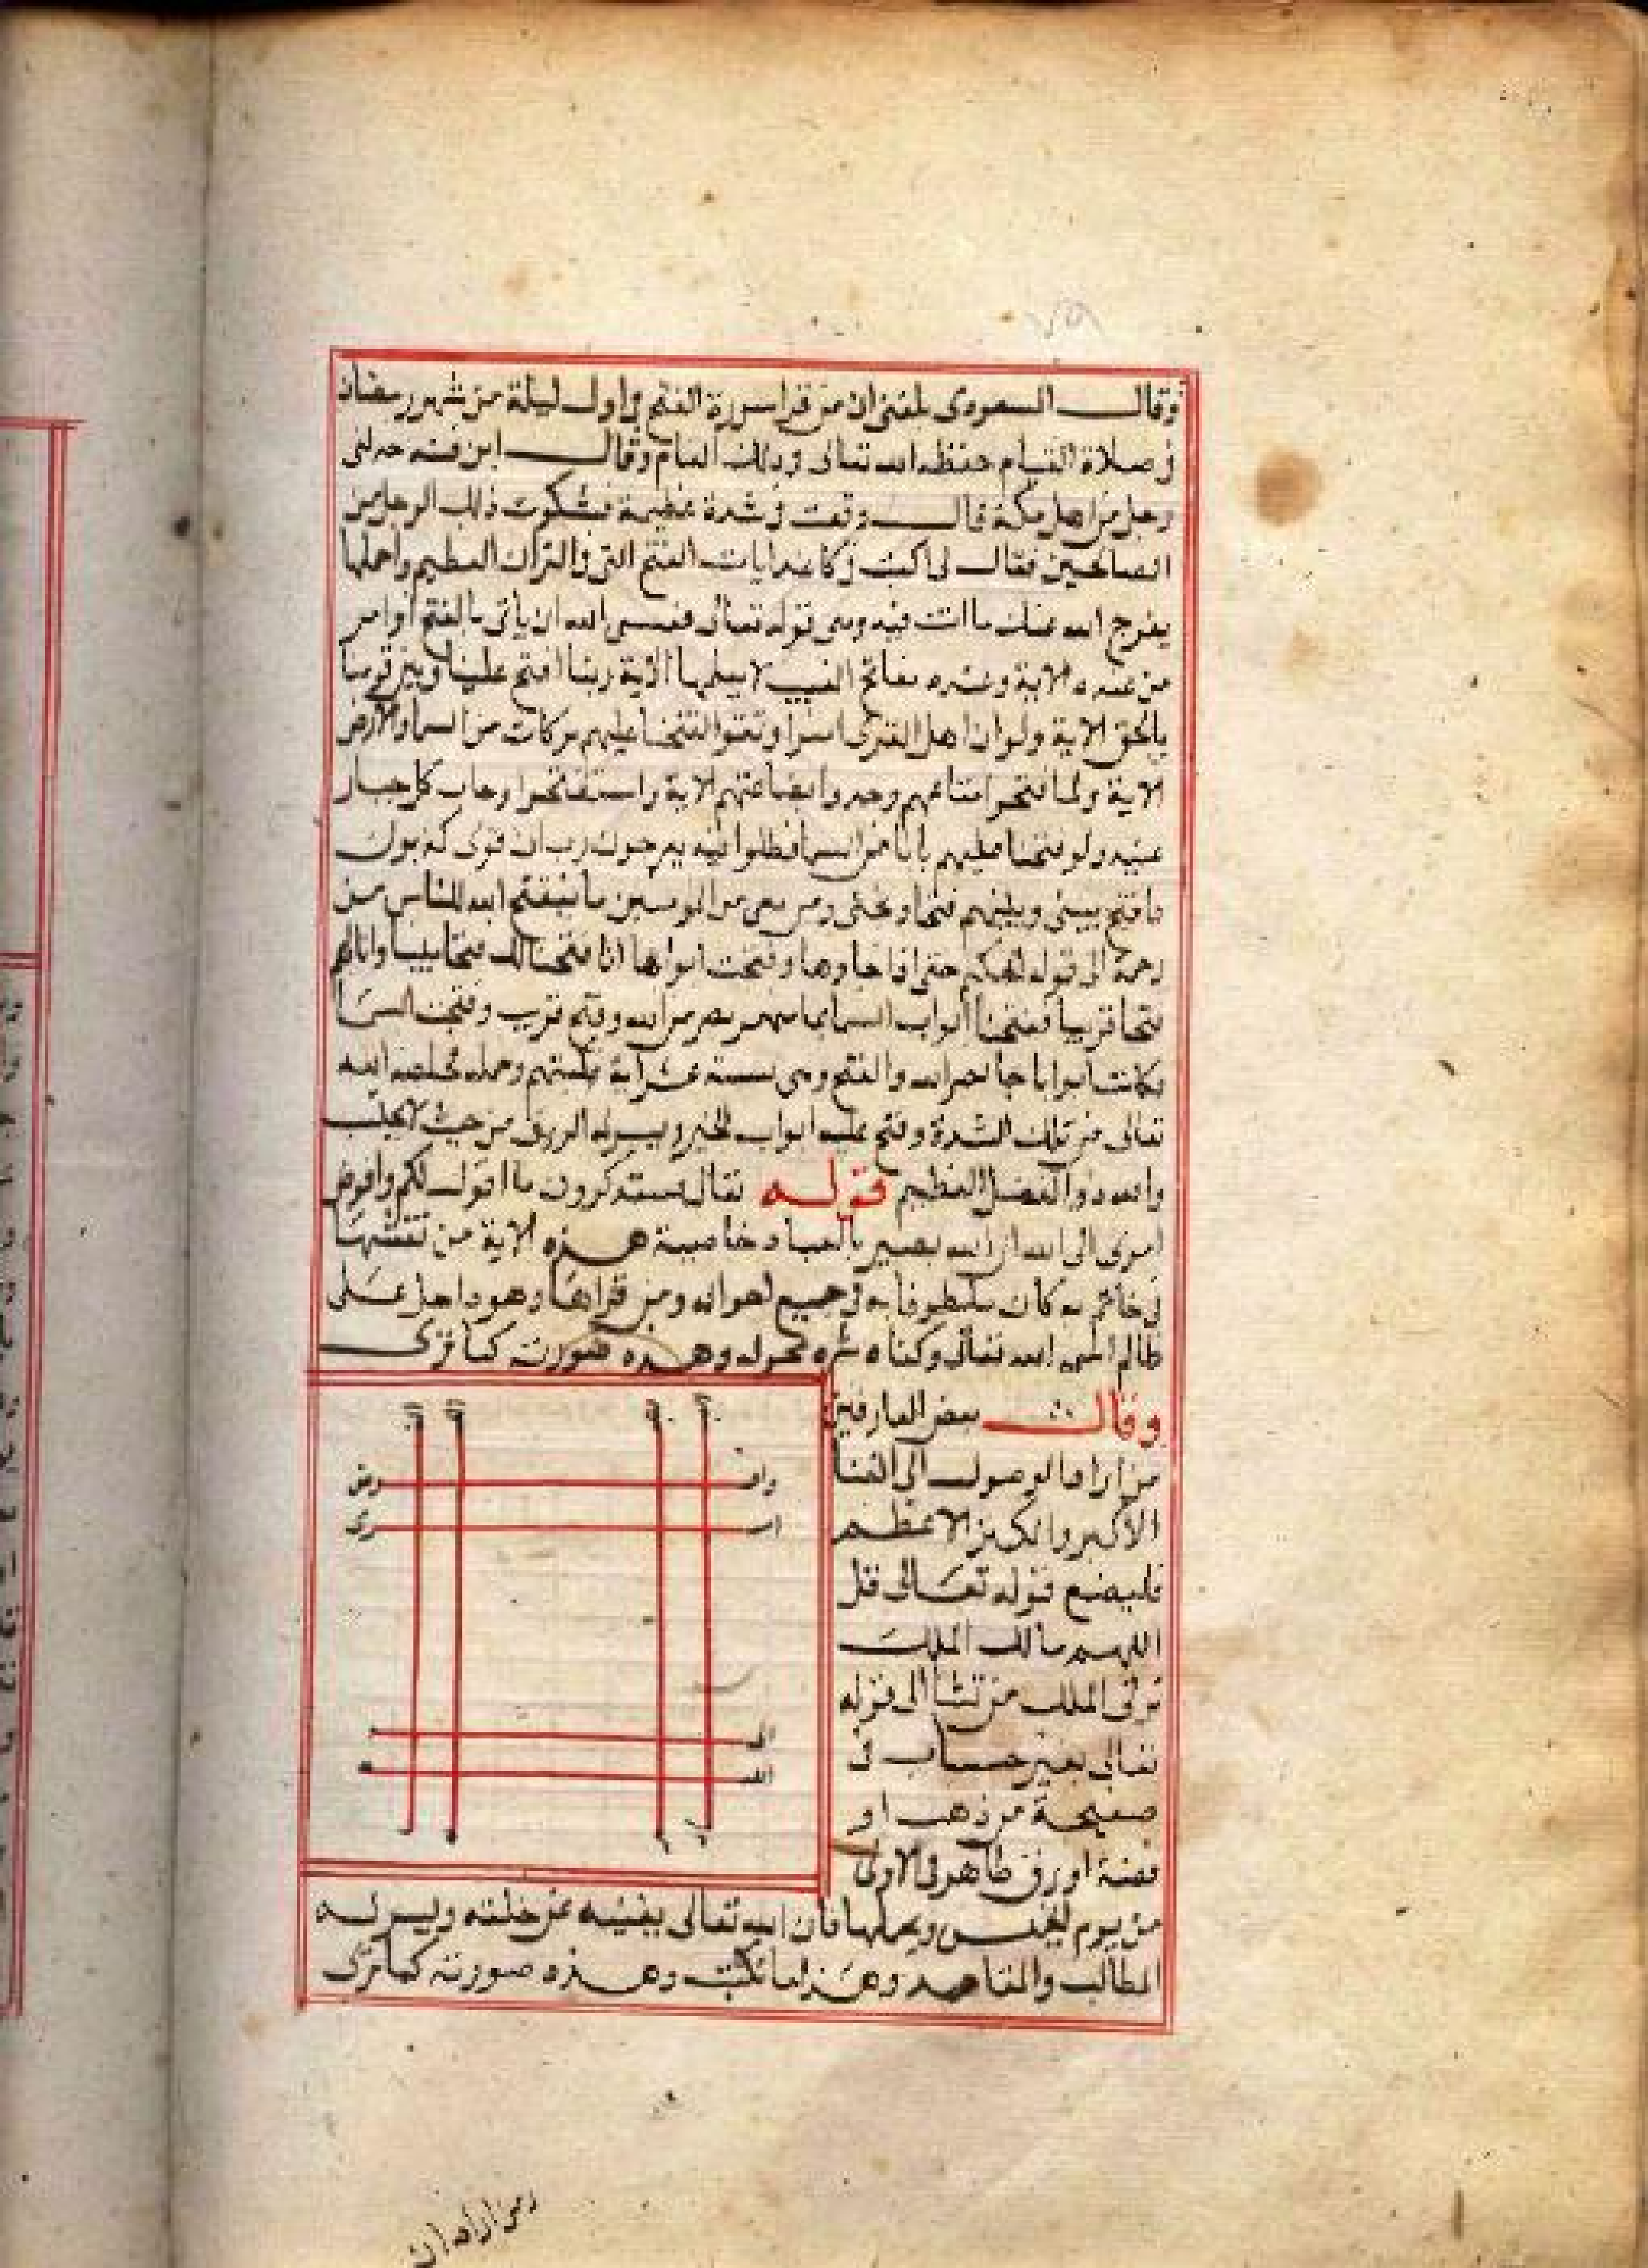 وقال السعودى بلغنى ان من قرا سورة الفتح فى اول ليلة من شهر رمضان
فى صلاة القيام حفظه الله تعالى فى ذلك العام وقال ابن حدثنى
رجل من اهل مكة قال وقعت فى شدة عظيمة فشكوت ذلك الرجل من
الصالحين فقال لى اكتب فى كاغد ايات الفتح التى فى القران العظيم واحملها
يفرج الله عنك ما انت فيه وهى قوله تعالى فعسى الله ان ياتى بالفتح او امر
من عنده الاية وعنده مفاتح الغيب لا يعلمها الاية ربنا افتح علينا وبين قومنا
بالحق الاية ولو ان اهل القرى امنوا وتقوا لفتحنا عليهم بركات من السما والارض
الاية ولما فتحوا متاعهم وجدوا بضاعتهم الاية واستفتحوا وخاب كل جبار
عنيد ولو فتحنا عليهم بابا من السما فظلوا فيه يعرجون رب ان قومى كذبون
فافتح بينى وبينهم فتحا ونجنى ومن معى من المومنين ما يفتح الله للناس من
رحمة الى قوله الحكيم حتى اذا جاوها وفتحت ابوابها انا فتحنا لك فتحا مبينا واثابهم
فتحا قريبا ففتحنا ابواب السما بما منهمر نصر من الله وفتح قريب وفتحت السما
فكانت ابوابا جا نصر الله والفتح وهى ستة عشر اية فكتبتهم وحمله فخلصه الله
تعالى من تلك الشدة وفتح عليه ابواب الخير ويسر له الرزق من حيث لا يحتسب
والله ذو الفضل العظيم قوله تعالى فستذكرون ما اقول لكم وافوض
امرى الى الله ان الله بصير بالعباد خاصية هذه الاية من نقشها
فى خاتم كان به فى جميع احواله ومن قراها وهو داخل على
ظالم الله تعالى وكفاه شره وهذه صورته كما ترى
وقال بعض العارفين
من اراد الوصول الى الغنا
الاكبر والكنز الاعظم
فليضع قوله تعالى قل
اللهم مالك الملك
توتى الملك من تشا الى قوله
تعالى بغير حساب فى
صفيحة من ذهب او
فضة او رق طاهر فى الاولى
من يوم الخميس ويحملها فان الله تعالى يغنيه عن خلقه وييسر له
المطالب والمقاصد وهذا ما تكتب وهذه صورته كما ترى
ومن اراد ان